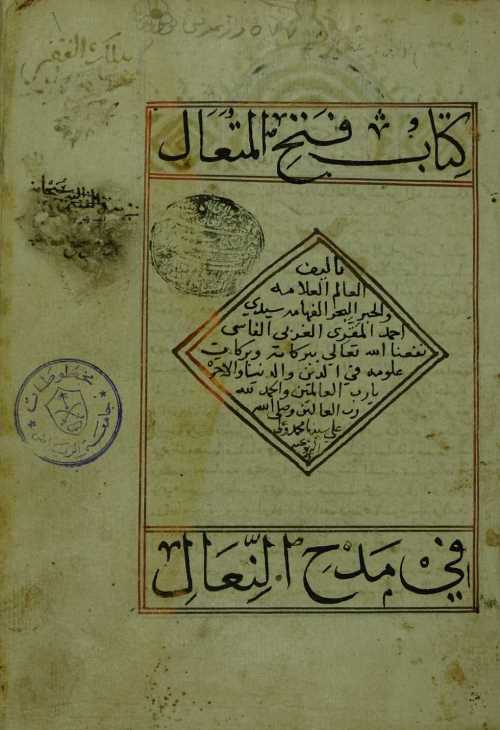 لمالك الفقير
كتاب فتح المتعال
تاليف
العالم العلامه
والحبر البحر الفهامه سيدي
احمد المقرى المغربي الفاسي
نفعنا الله تعالى ببركاته وبركات
علومه في الدين والدنيا والاخرة
يارب العالمين والحمد لله
رب العالمين وصلى الله
على سيدنا محمد وعلى
مخطوطات
جامعة الرياض
في مدح النِّعال